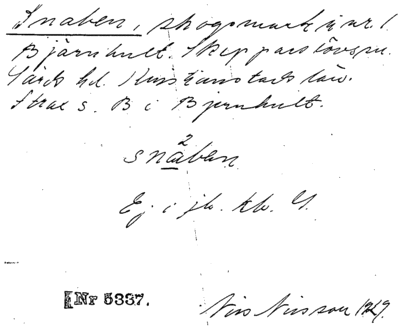 Snaben, skogsmark å nr 1
Bjärnhult. Skepparslövs sn.
Gärds hd. Kristianstads län.
Skaes. B i Bjernhult.
snaben
2
Ej i jb. kb. G.
[Nr 5337.
Nils Nilsson 1929.